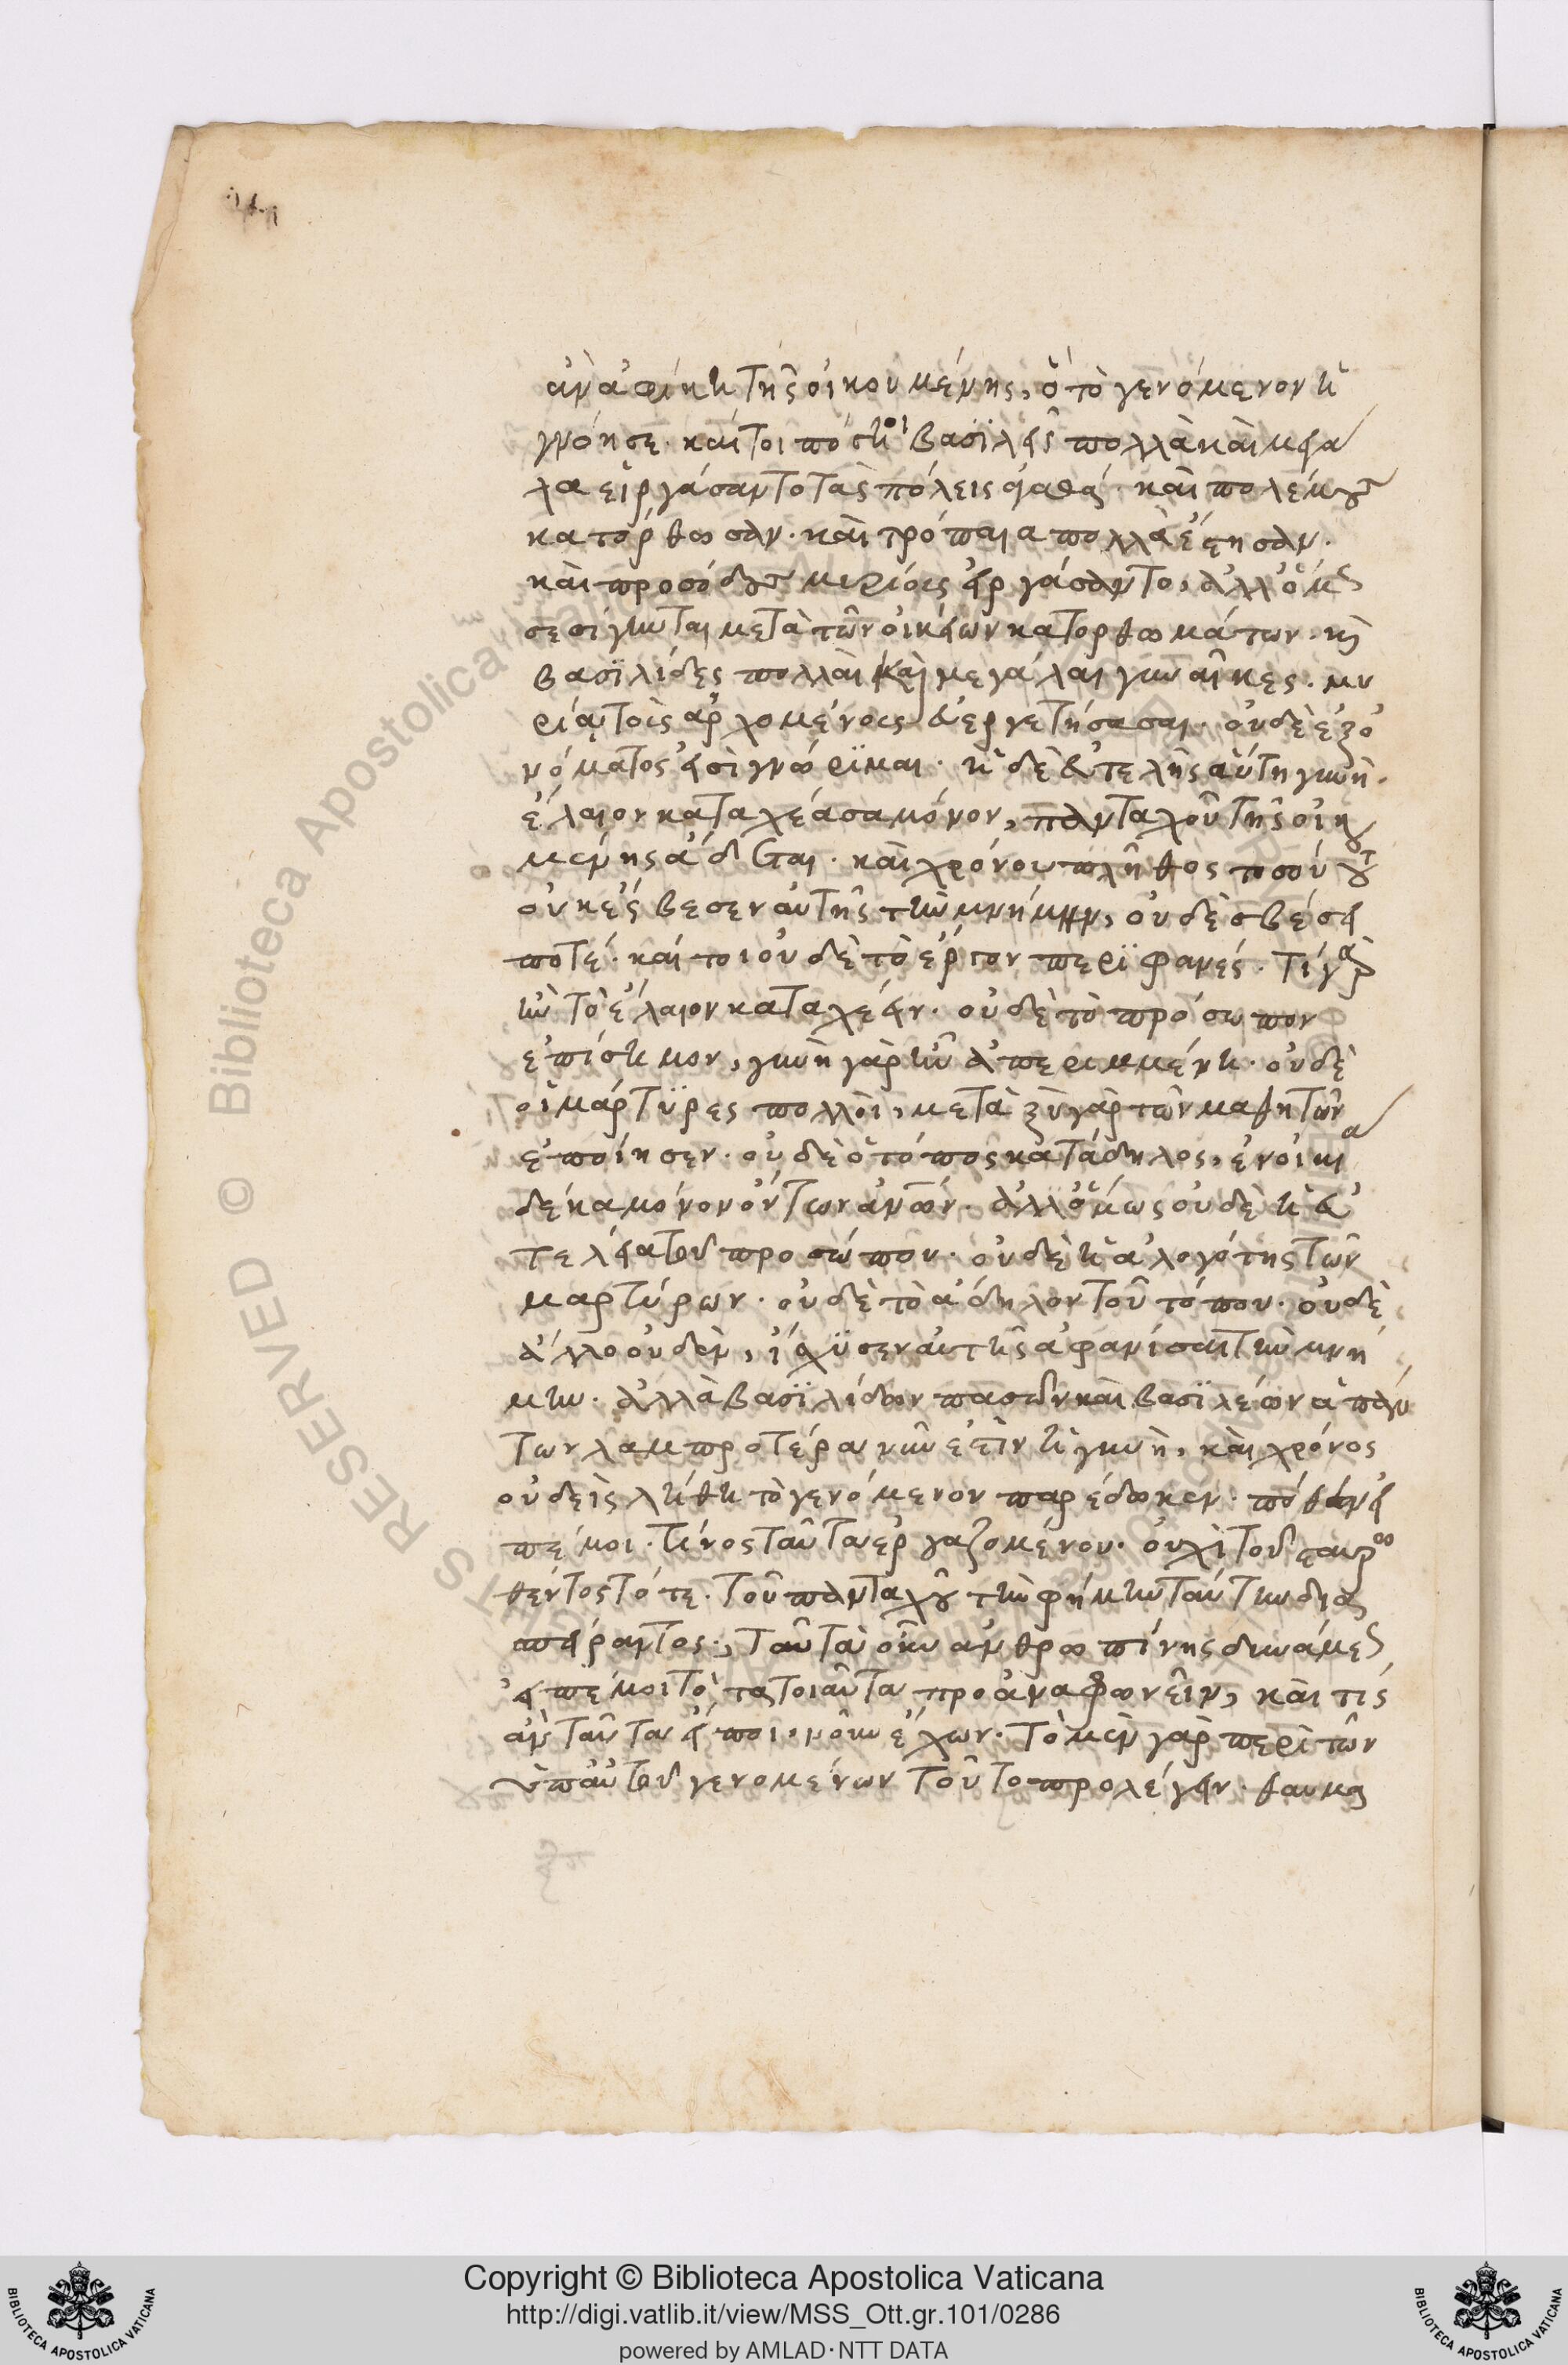 ἂν ἀφίκῃ τῆς οἰκουμένης, ὃ τὸ γενόμενον ἠ
γνόησε· καίτοι πόσοι βασιλεῖς πολλὰ καὶ μεγα
λα εἰργάσαντο τὰς πόλεις ἀγαθά· καὶ πολέμους
κατόρθωσαν· καὶ τρόπαια πολλὰ ἔστησαν·
καὶ προσόδους μυρίοις εἰργάσαντο, ἀλλ' ὅμως
σεσίγηνται μετὰ τῶν οἰκείων κατορθωμάτων· καὶ
βασιλίδες πολλαὶ καὶ μεγάλαι γυναῖκες· μυ
ρία τοῖς ἀρχομένοις εὐεργετήσασαι· οὐδὲ ἐξ ὀ
νόματος εἰσὶ γνώριμαι· ἡ δὲ εὐτελὴς αὕτη γυνὴ·
ἔλαιον καταχέασα μόνον, πανταχοῦ τῆς οἰκου
μένης ᾄδεται· καὶ χρόνου πλῆθος τοσοῦτον
οὐκ ἔσβεσεν αὐτῆς τὴν μνήμην, οὐδὲ σβέσει
ποτέ· καί τοι οὐδὲ τὸ ἔργον περιφανές· τί γὰρ
ἦν τὸ ἔλαιον καταχέειν· οὐδὲ τὸ πρόσωπον
ἐπίσημον, γυνὴ γὰρ ἦν ἀπεριμμένη· οὐδὲ
οἱ μάρτυρες πολλοὶ, μεταξὺ γὰρ τῶν μαθητῶν
ἐποίησεν· οὐδὲ ὁ τόπος κατάδηλος, ἐν οἰκία
δέκα μόνον ὄντων ἀνων· ἀλλ' ὅμως οὐδὲ ἡ εὐ
τέλεια τοῦ προσώπου· οὐδὲ ἡ ἀλογότης τῶν
μαρτύρων· οὐδὲ τὸ ἄδηλον τοῦ τόπου· οὐδὲ
ἄλλο οὐδὲν, ἴσχυσεν αὐτῆς ἀφανίσαι τὴν μνή
μην· ἀλλὰ βασιλίδων πασῶν καὶ βασιλέων ἁπάν
των λαμπροτέρα νῦν ἐστὶν ἡ γυνὴ, καὶ χρόνος
οὐδεὶς λήθη τὸ γενόμενον παρέδωκεν· πόθεν εἰ
πέ μοι· τίνος ταῦτα ἐργαζομένου· οὐχὶ τοῦ σταυρω
θέντος τότε· τοῦ πανταχοῦ τὴν φήμην ταύτην δια
σπείραντος·, ταῦτα οὖν ἀνθρωπίνης δυνάμεως
εἰπέ μοι τὸ τὰ τοιαῦτα προαναφωνεῖν, καὶ τίς
ἂν ταῦτα εἴποι, νοῦν ἔχων· τὸ μὲν γὰρ περὶ τῶν
ὑπ' αὐτοῦ γενομένων τοῦτο προλέγειν· θαυμα
Copyright © Biblioteca Apostolica Vaticana
http://digi.vatlib.it/view/MSS_Ott.gr.101/0286
powered by AMLAD·NTT DATA